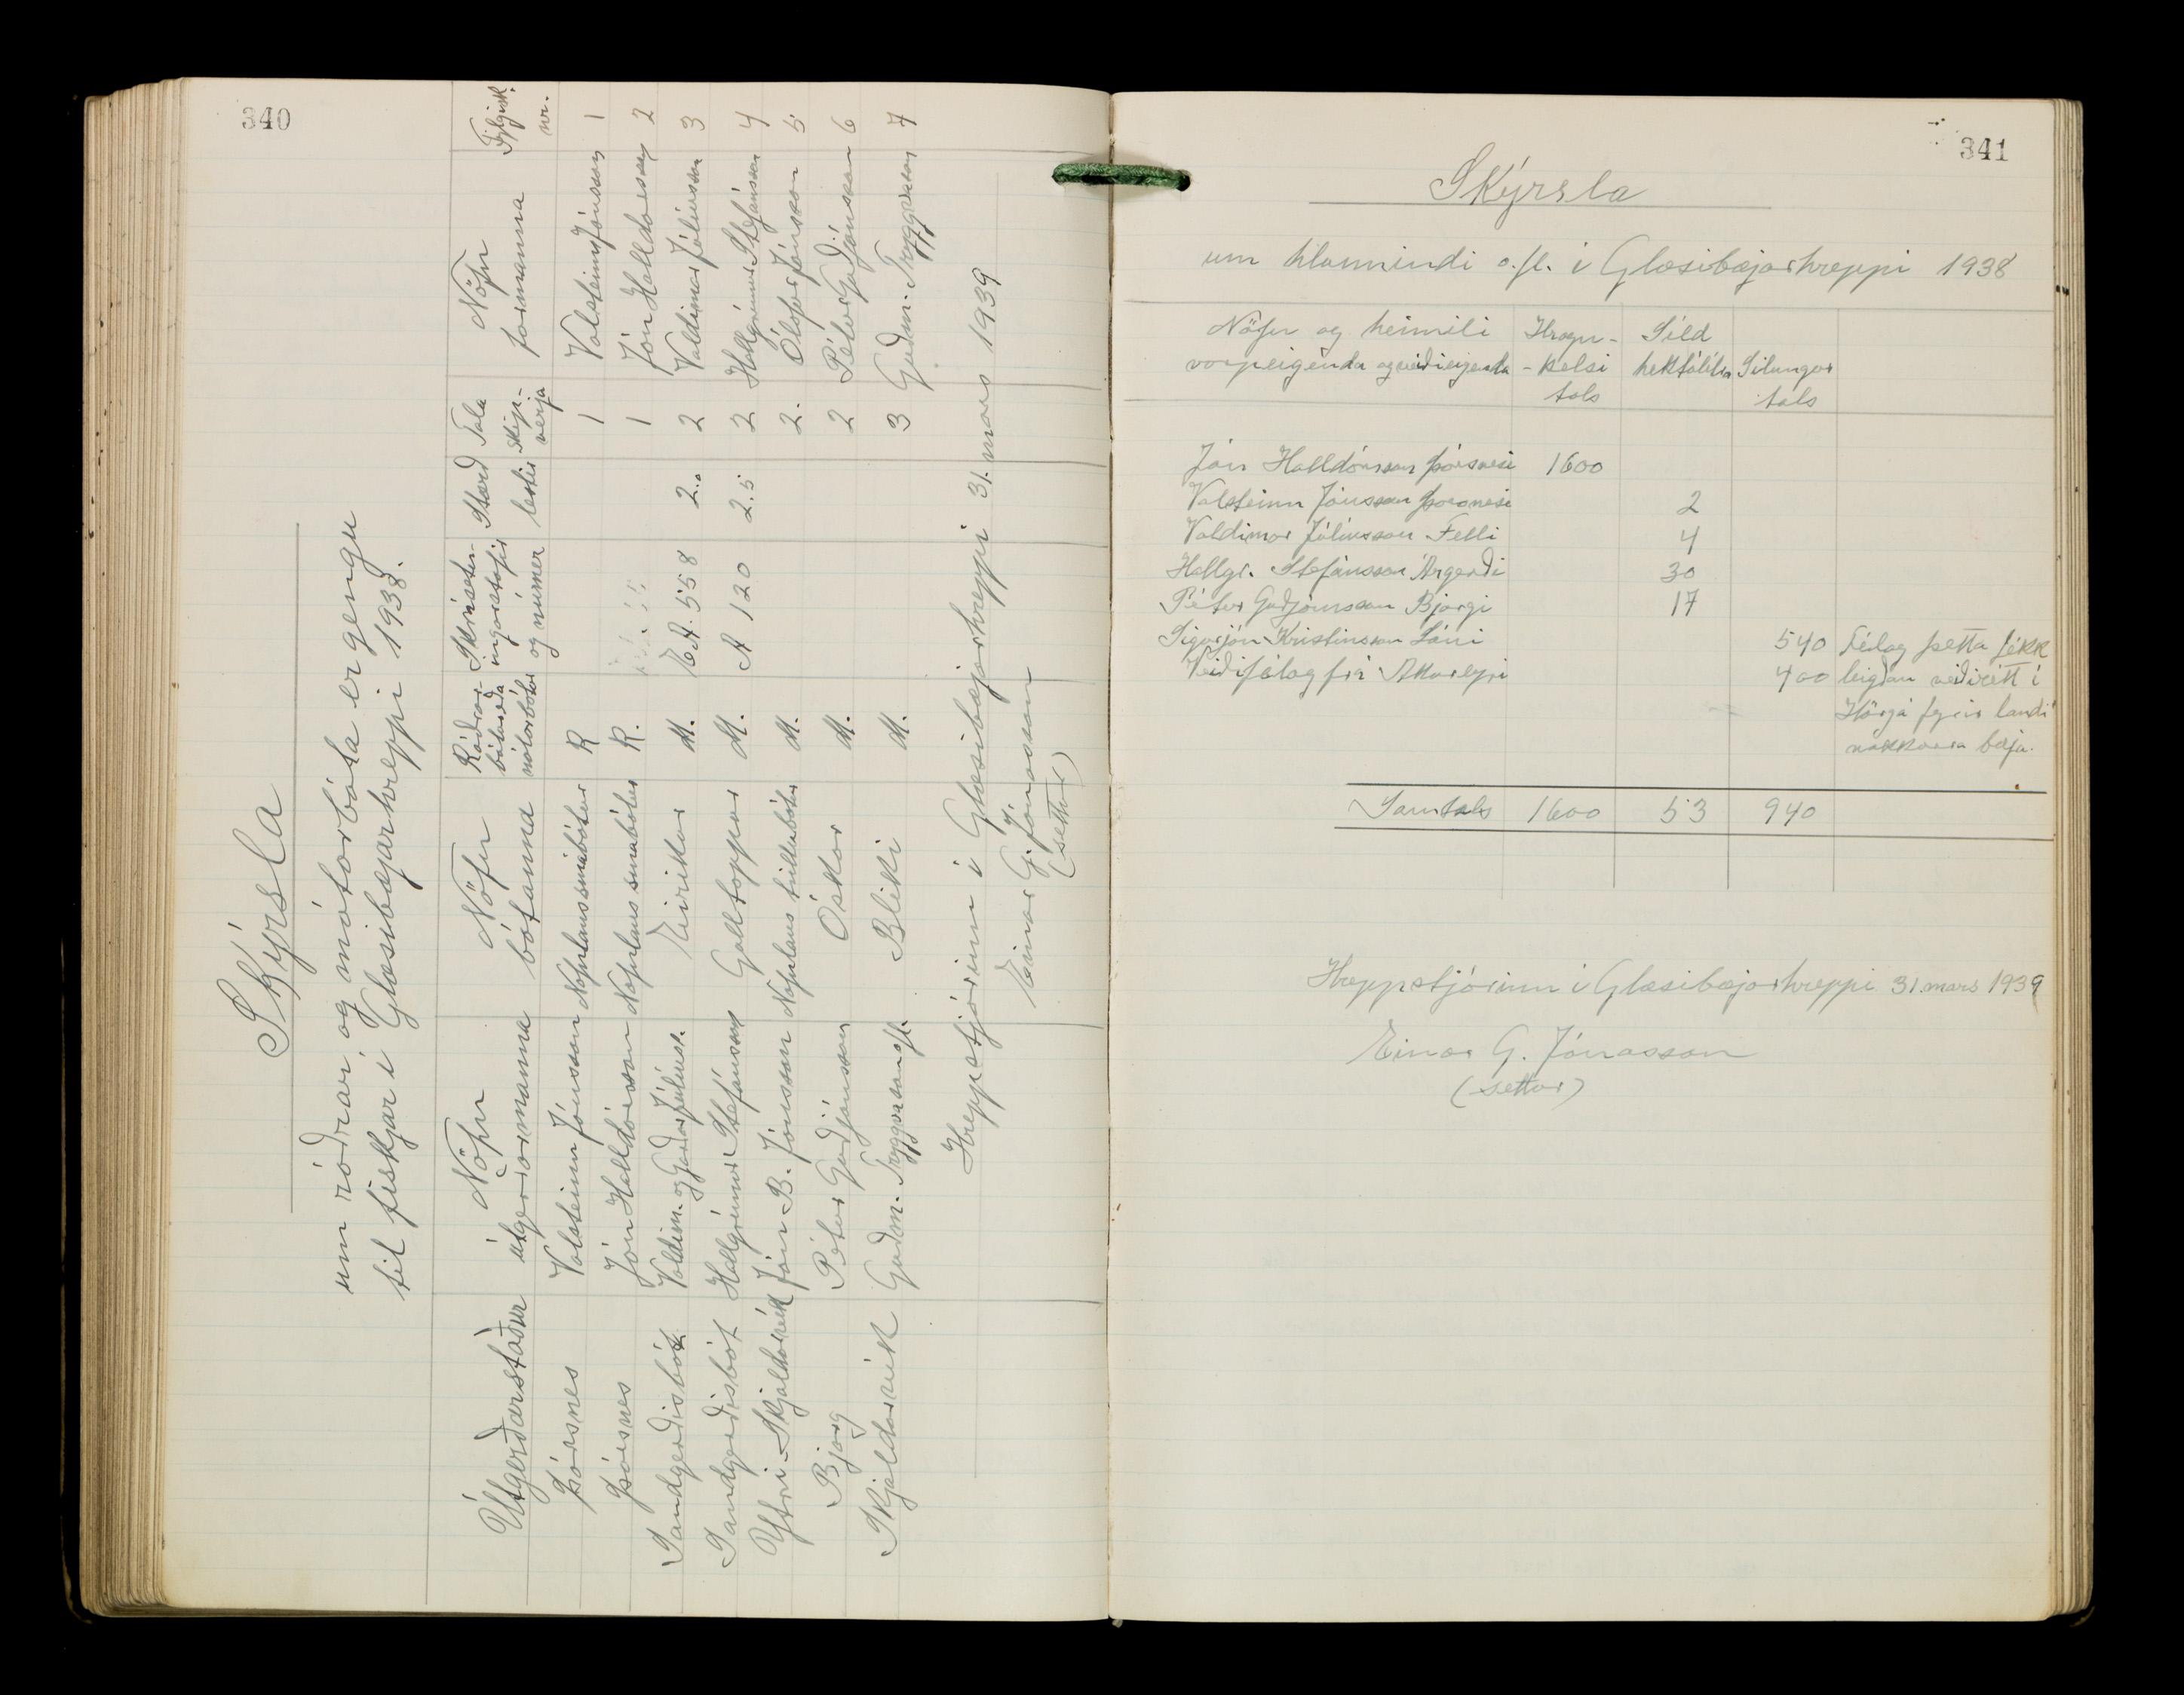 340
Skýrsla
um róðrar og mótorbáta er gengu
til fiskjar i Glæsibæjarhreppi 1938.
Útgerðarstaður Nöfn útgerðarmanna Nöfn bátanna Róðrar- bátar eða mótorbátar Skrásetn- ingarstafir og númer Stærð lestir Tala skip- verja Nöfn formanna Fylgisk. nr.
Þórsnes Valsteinn Jónsson Nafnlaus smábátur R 1 Valsteinn Jónsson 1
Þórsnes Jón Halldórsson Nafnlaus smábátur R. 1 Jón Halldorsson 2
Sandgerðisbót Valdim. og Garðar Júlíuss. Eirikur M. EA. 558 2.0 2 Valdimar Júlíusson 3
Sandgerðisbót Hallgrímur Stefánsson Galltoppur M. A 120 2.5 2 Hallgrímur Stefánsson 4
Ytri-Skjaldarvík Jón B. Jónsson Nafnlaus trillubátur M. 2. Ólafur Jónsson 5
Bjarg Pétur Guðjónsson Óskar M. 2 Pétur Guðjónsson 6
Skjaldarvík Guðm. Tryggvason ofl. Bliki M. 3 Guðm. Tryggvason 7
Hreppstjórinn i Glæsibæjarhreppi 31. mars 1939
Einar G. Jónasson
(settur)
341
Skýrsla
um hlunnindi o.fl. i Glæsibæjarhreppi 1938
Nöfn og heimili Hrogn- Síld
varpeigenda og veiðieigenda -kelsi hektólítra Silungar
tals tals
Jón Halldórsson Þórsnesi 1600
Valsteinn Jónsson Þórsnesi 2
Valdimar Júlíusson Felli 4
Hallgr. Stefánsson Árgerði 30
Pétur Guðjónsson Bjargi 17
Sigurjón Kristinsson Lóni 540 Félag þetta fékk
Veiðifélag frá Akureyri 400 leigðan veiðirétt í
Hörgá fyrir landi
nokkurra bæja.
Samtals 1600 53 940
Hreppstjórinn i Glæsibæjarhreppi 31. mars 1939
Einar G. Jónasson
(settur)